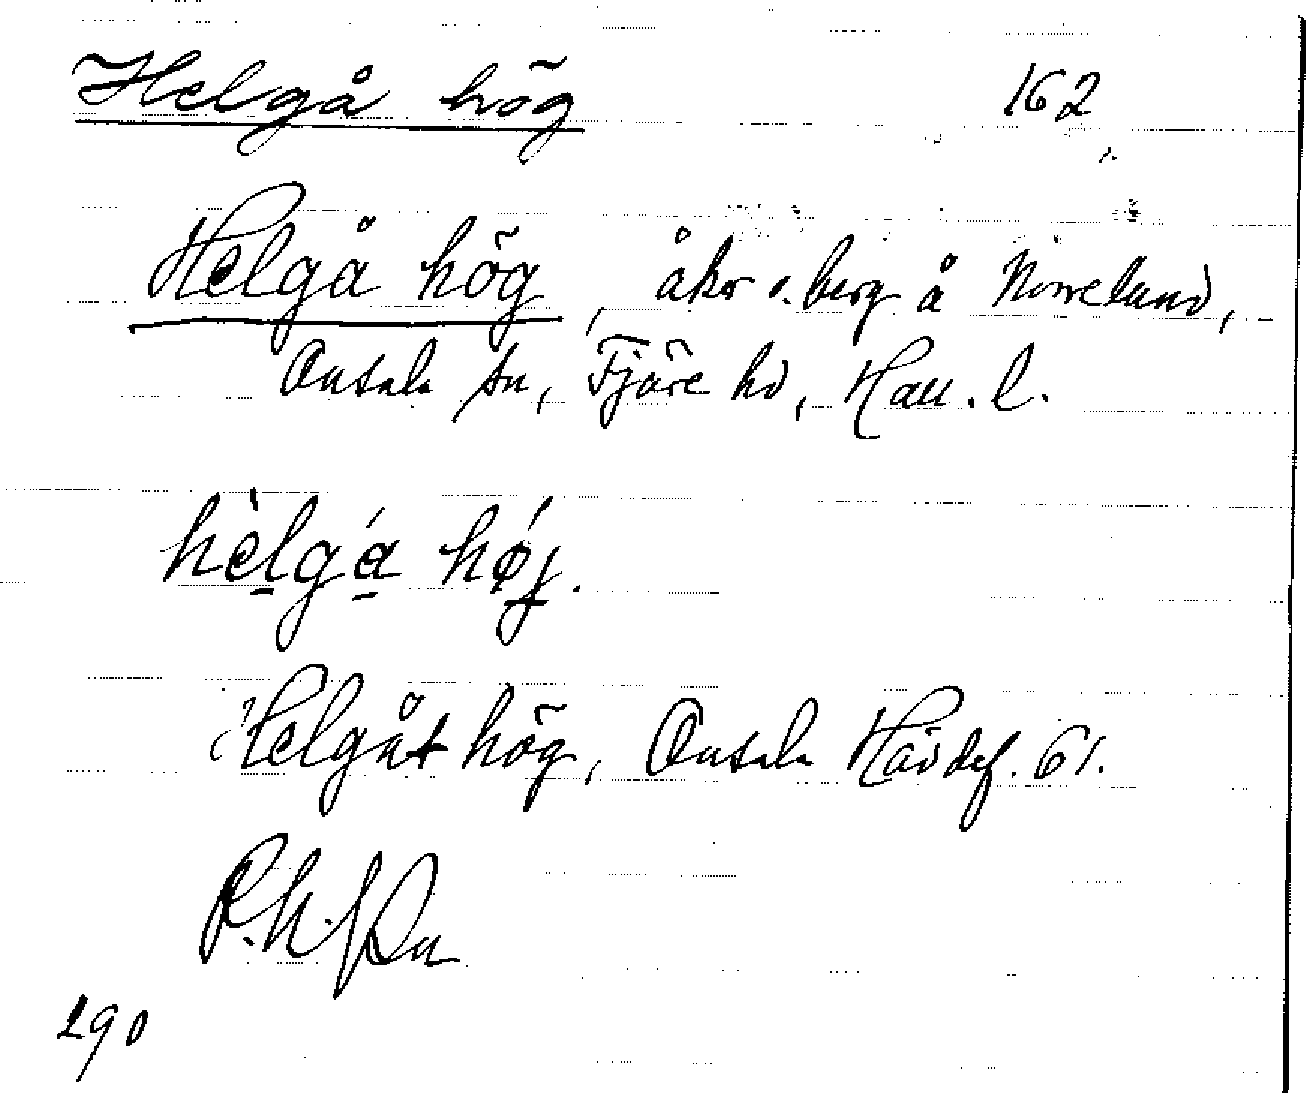 Helgå hög 162
Helgå hög, åker o. berg å Norreland,
Onsala sn, Fjäre hd, Hall. l.
hèlgá høj.
Helgåt hög, Onsala Hävdef. 61.
290